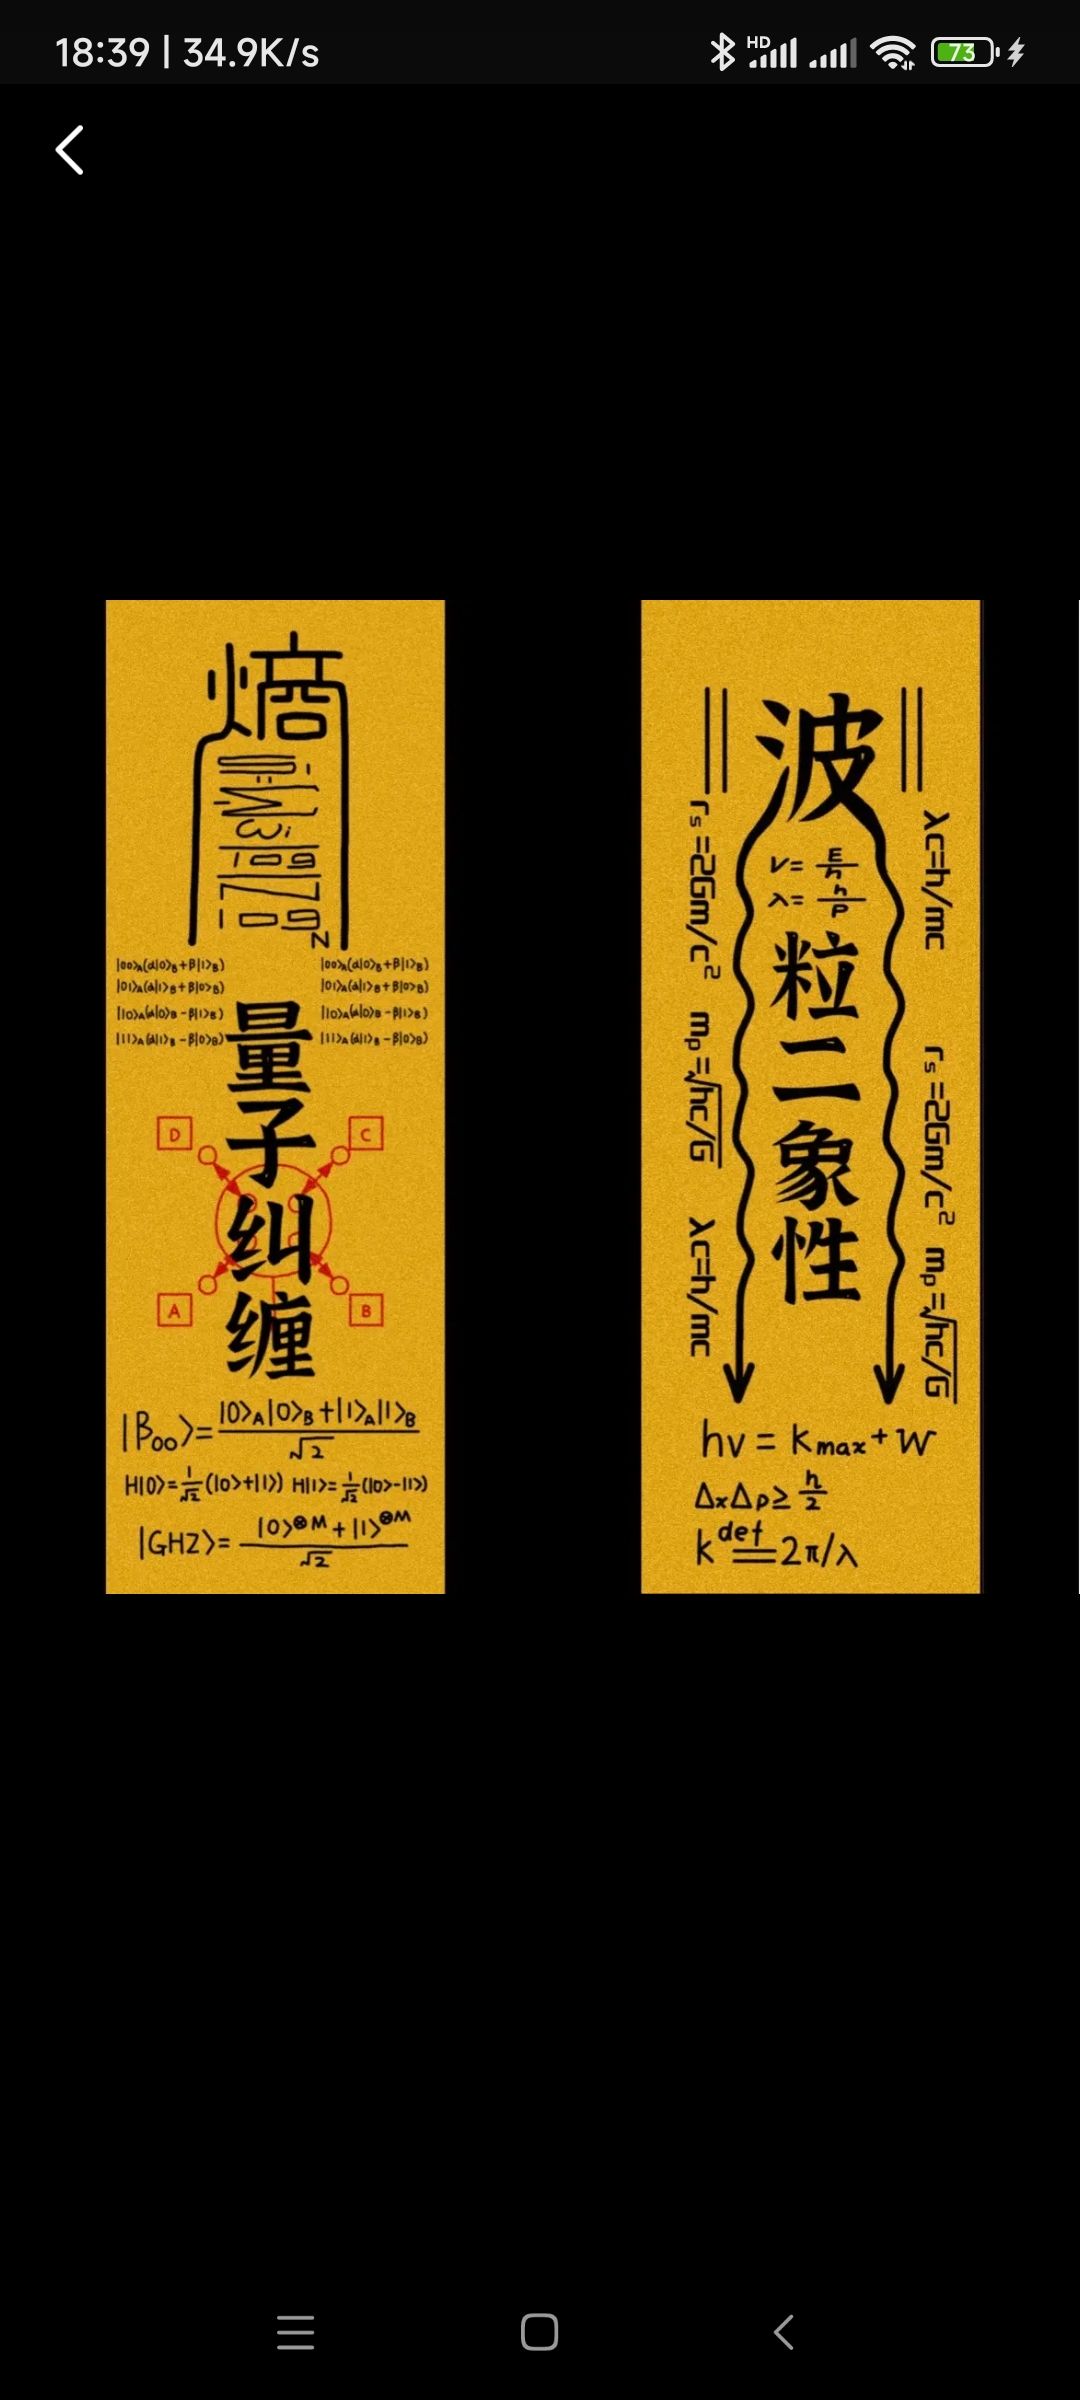 18:39 | 34.9K/s
HD
73
熵
|00>A(α|0>B+β|1>B)
|01>A(α|1>B+β|0>B)
|10>A(α|0>B-β|1>B)
|11>A(α|1>B-β|0>B)
|00>A(α|0>B+β|1>B)
|01>A(α|1>B+β|0>B)
|10>A(α|0>B-β|1>B)
|11>A(α|1>B-β|0>B)
量子纠缠
D
C
A
B
|B00>=|0>A|0>B+|1>A|1>B/√2
H|0>=1/√2(|0>+|1>) H|1>=1/√2(|0>-|1>)
|GHZ>=|0>⊗M+|1>⊗M/√2
波
ν=E/h
λ=h/p
粒二象性
rs=2Gm/c² mp=√hc/G λc=h/mc
λc=h/mc rs=2Gm/c² mp=√hc/G
hν=Kmax+W
ΔxΔp≥ħ/2
k def= 2π/λ